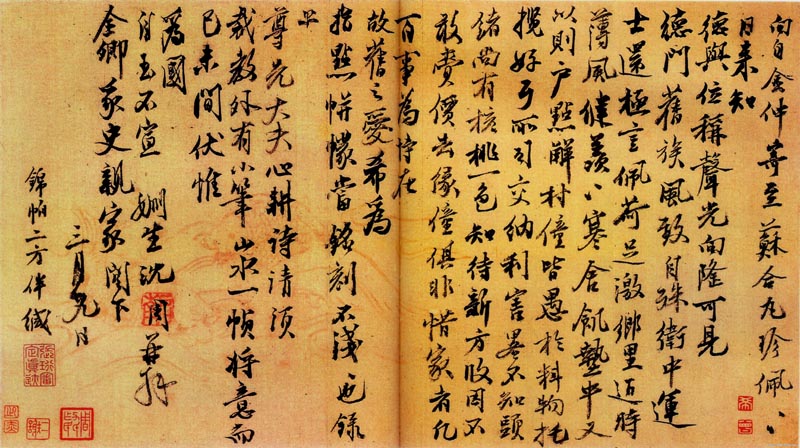 向自金仲等至蘇合九珍佩〻
日来知
德與位稱聲光向隆可見
德門舊族風致自殊衛中運
士還極言佩荷足激鄉里近時
薄風健羨〻寒舍飢墊中又
以則户點解村僮皆愚於料物托
攬好歹所司交納利害畧不知頭
緒尚有核桃一色知待新方收因不
敢費價去像僮俱非惜家者凡
百事為恃在
故舊之愛希為
指點帡幪當銘刻不淺也錄
上
尊先大夫心耕詩請須
裁教外有小筆山水一幀將意而
已未間伏惟
為國
自玉不宣 姻生沈周再拜
全卿豖史親家閣下
三月九日
錦帕二方伴緘